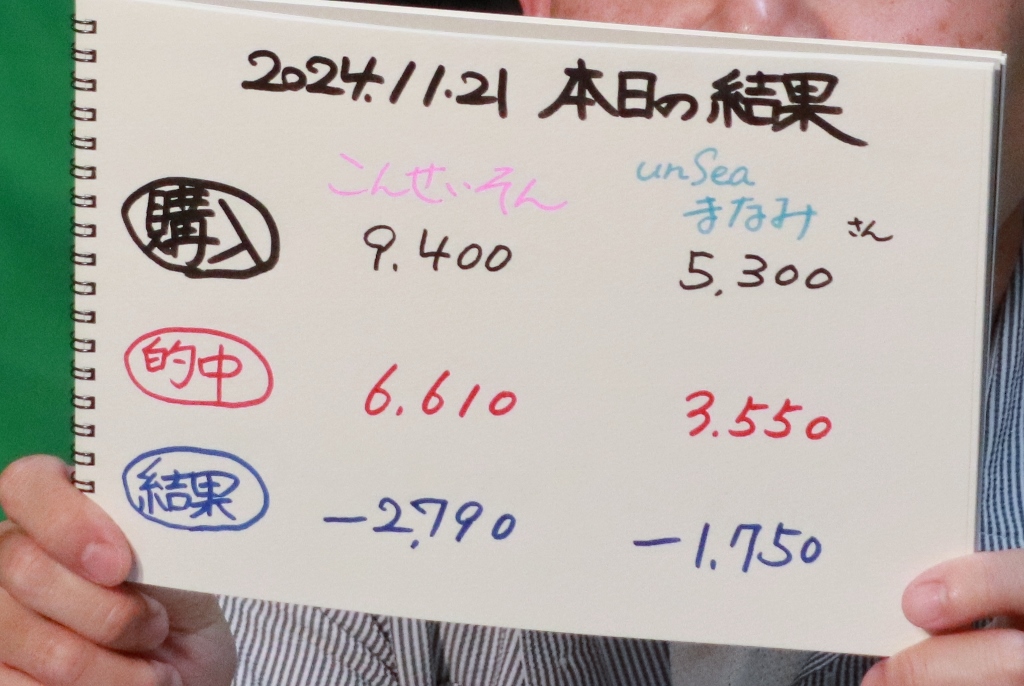 2024.11.21 本日の結果
こんせいそん
unSea
まなみ さん
購入 9.400 5,300
的中 6.610 3.550
結果 -2,790 -1.750